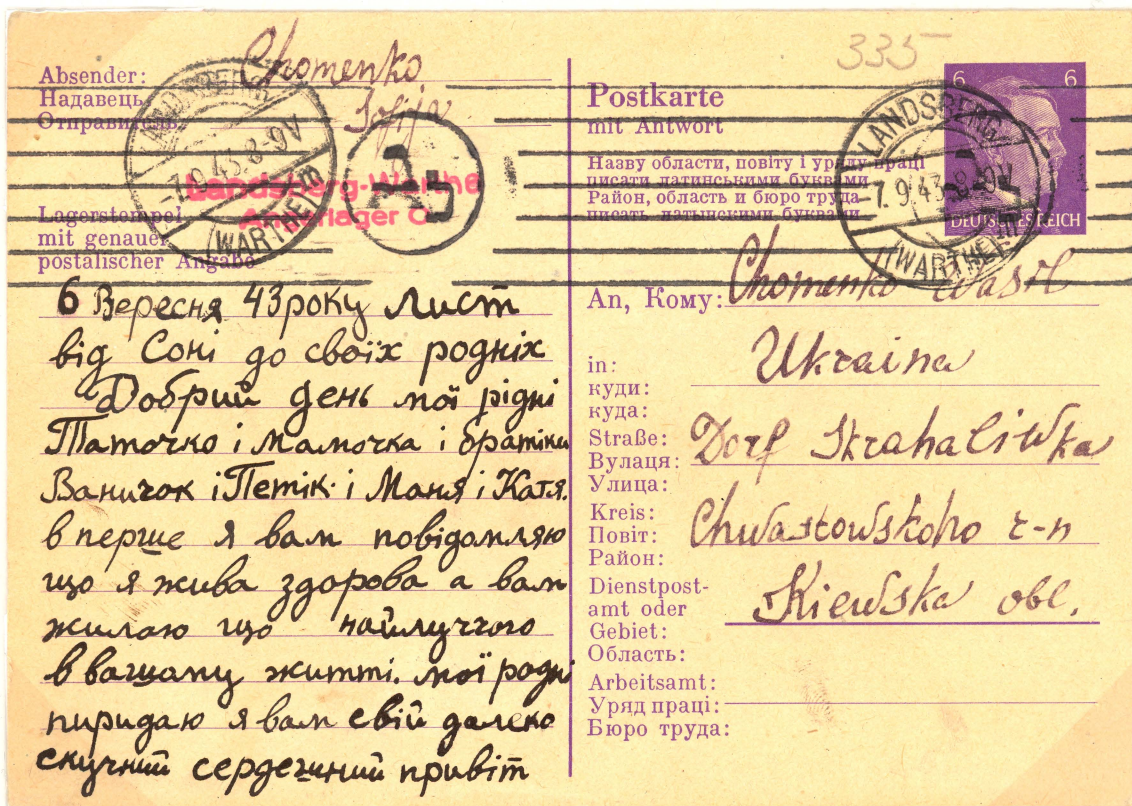 Absender:
Надавець
Отправитель
Chomenko
Sofija
LANDSBERG
-7.9.43.8-9V
(WARTHE)
Landsberg-Warthe
Lagerstempel
mit genauer
postalischer Angabe
6 Вересня 43 року лист
від Соні до своїх родніх
Добрий день мої рідні
Таточко і мамочка і братіки
Ваничок і Петік. і Маня і Катя.
в перше я вам повідомляю
що я жива здорова а вам
жилаю що найлуччого
в вашому житті. мої родні
пиридаю я вам свій далеко
скучний сердешний привіт
335
Postkarte
mit Antwort
Назву области, повіту і уряду праці
писати латинськими буквами
Район, область и бюро труда
писать латынскими буквами
6 6
DEUTSCHES REICH
LANDSBERG
7.9.43.8-9V
(WARTHE)
An, Кому: Chomenko Wasil
in: Ukraina
куди:
куда:
Straße: Dorf Skrahaliwka
Вулаця:
Улица:
Kreis: Chwastowskoho r-n
Повіт:
Район:
Dienstpost-
amt oder Kiewska obl.
Gebiet:
Область:
Arbeitsamt:
Уряд праці:
Бюро труда: